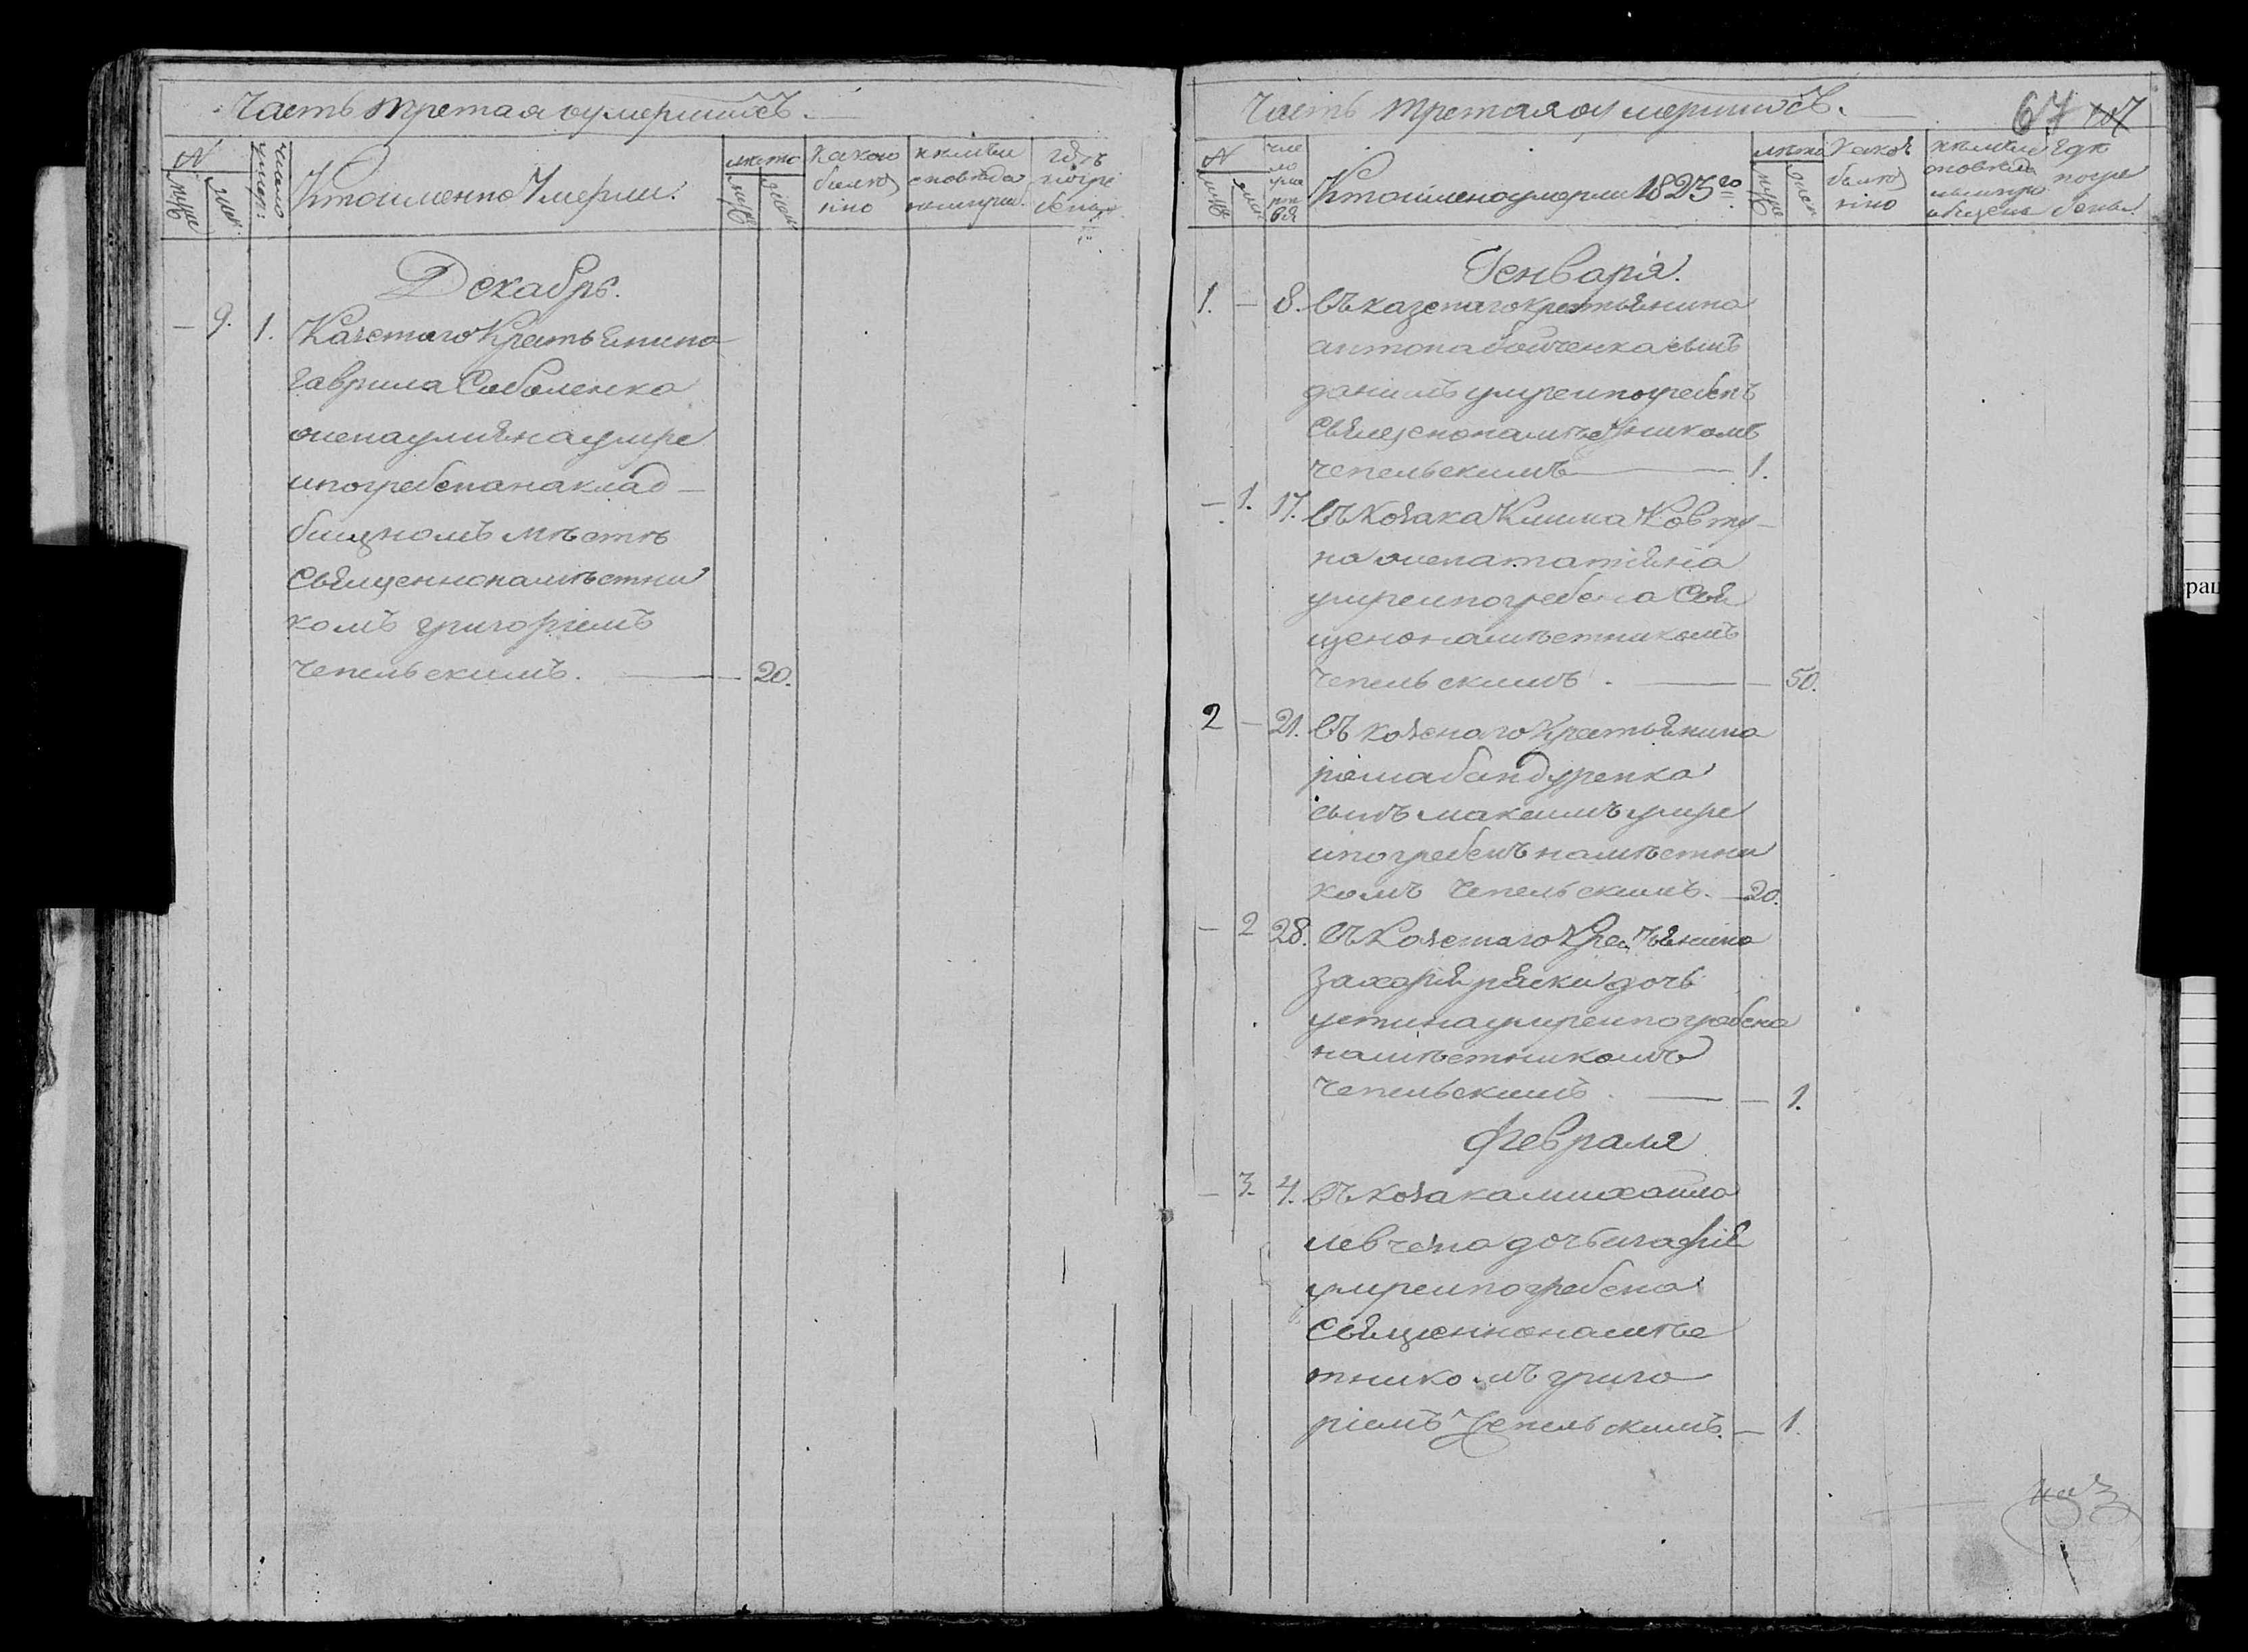 Часть третая оумершихъ.
№
муже
жен:
число умер:
Кто именно Умерли.
лѣто
муже
женс
какою болѣзнію
Декабрь.
— 9. 1. Казенаго Крестьянина
гаврила Соболенка
жена улияна умре
и погребена на клад-
бищномъ мѣстѣ
Священнонамѣстни
комъ григоріемъ
чепельскимъ. — 20.
Часть третая оумершихъ.
67
№
муже
жен
Кто именоумерли 1823го.
лѣто
муже
жен
болѣз
нію
Генварія.
1. — 8. въ казенаго крестьянина
антона бойченка сынъ
данилъ умре и погребенъ
Священонамѣсникомъ
чепельскимъ — 1.
— 1. 17. въ козака Клима Ковту-
на жена татіяна
умре и погребена Свя
щенонамѣстникомъ
чепельскимъ. — 50.
2 — 21. въ казенаго крестьянина
рома бандуренка
сынъ максимъ умре
и погребенъ намѣстни
комъ чепельскимъ. — 20.
— 2 28. въ Казенаго Крестьянина
захарія ряски дочь
устина умре и погребена
намѣстникомъ
чепельскимъ. — 1.
февраля
— 3. 4. въ козака михаила
левченка дочь агафія
умре и погребена
Священнонамѣс
тникомъ григо
ріемъ Чепельскимъ. — 1.